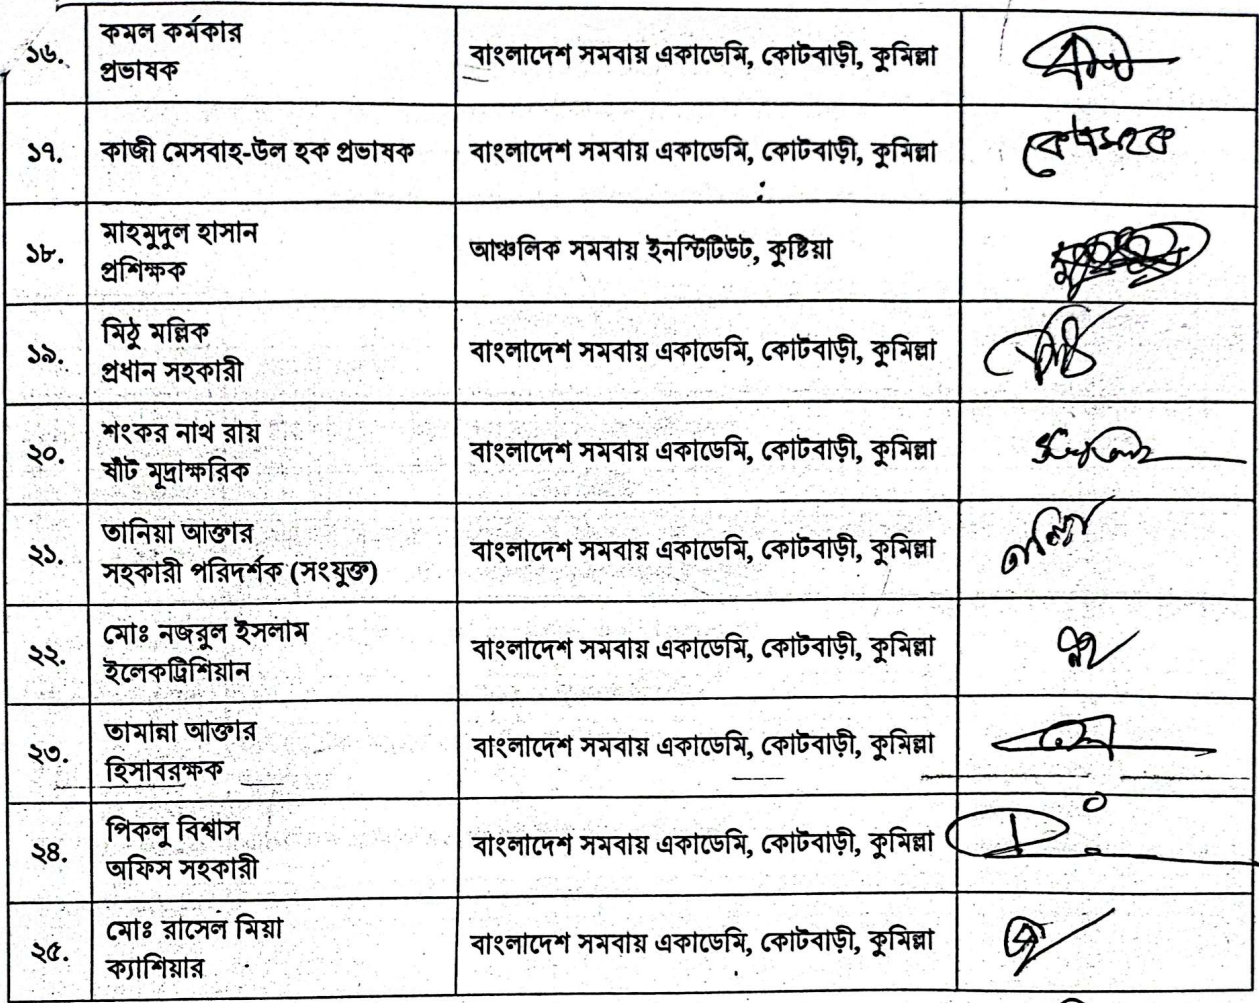 ১৬. কমল কর্মকার
প্রভাষক
বাংলাদেশ সমবায় একাডেমি, কোটবাড়ী, কুমিল্লা
১৭. কাজী মেসবাহ-উল হক প্রভাষক
বাংলাদেশ সমবায় একাডেমি, কোটবাড়ী, কুমিল্লা
১৮. মাহমুদুল হাসান
প্রশিক্ষক
আঞ্চলিক সমবায় ইনস্টিটিউট, কুষ্টিয়া
১৯. মিঠু মল্লিক
প্রধান সহকারী
বাংলাদেশ সমবায় একাডেমি, কোটবাড়ী, কুমিল্লা
২০. শংকর নাথ রায়
ষাঁট মূদ্রাক্ষরিক
বাংলাদেশ সমবায় একাডেমি, কোটবাড়ী, কুমিল্লা
২১. তানিয়া আক্তার
সহকারী পরিদর্শক (সংযুক্ত)
বাংলাদেশ সমবায় একাডেমি, কোটবাড়ী, কুমিল্লা
২২. মোঃ নজরুল ইসলাম
ইলেকট্রিশিয়ান
বাংলাদেশ সমবায় একাডেমি, কোটবাড়ী, কুমিল্লা
২৩. তামান্না আক্তার
হিসাবরক্ষক
বাংলাদেশ সমবায় একাডেমি, কোটবাড়ী, কুমিল্লা
২৪. পিকলু বিশ্বাস
অফিস সহকারী
বাংলাদেশ সমবায় একাডেমি, কোটবাড়ী, কুমিল্লা
২৫. মোঃ রাসেল মিয়া
ক্যাশিয়ার
বাংলাদেশ সমবায় একাডেমি, কোটবাড়ী, কুমিল্লা